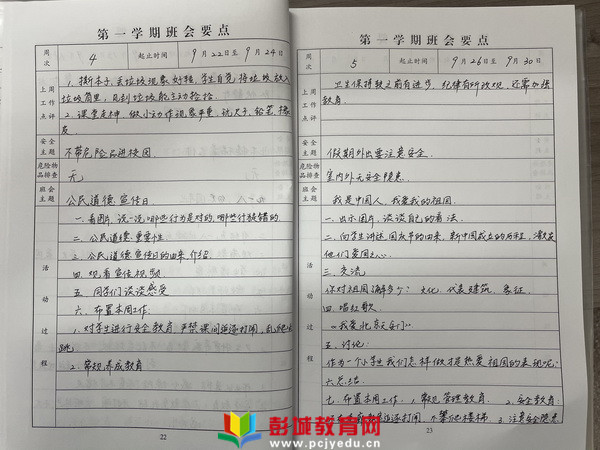 第一学期班会要点
周次 4 起止时间 9月22日至9月24日
上周工作点评
1、撕本子、丢垃圾现象好转,学生自觉将垃圾放入
垃圾筒里,见到垃圾能主动捡拾。
2、课堂走神、做小动作现象严重,玩尺子、铅笔、橡
皮
安全主题
不带危险品进校园。
危险物品排查
无
班会主题
公民道德宣传日
活动过程
一、看图片,说一说哪些行为是对的,哪些行为是错的
二、公民道德重要性
三、公民道德宣传日的由来介绍
四、观看宣传视频
五、同学们谈谈感受
六、布置本周工作:
1、对学生进行安全教育,严禁课间追逐打闹,
跳。
2、常规养成教育
22
第一学期班会要点
周次 5 起止时间 9月26日至9月30日
上周工作点评
卫生保持较之前有进步,纪律有所改观,还需加强
教育。
安全主题
假期外出要注意安全。
危险物品排查
室内外无安全隐患。
班会主题
我是中国人,我爱我的祖国。
活动过程
一、出示图片,谈谈自己的看法。
二、向学生讲述国庆节的由来,新中国成立的历程,激发
他们爱国之心。
三、交流
你对祖国了解多少?文化、代表建筑、象征
四、唱红歌
《我爱北京天安门》
五、讨论:
作为一个小学生我们怎样做才是热爱祖国的表现呢?
六、总结
七、布置本周工作:1、常规管理教育 2、安全教育:
追逐打闹,不攀爬楼梯 3、注意安全隐患
23
彭城教育网
www.pcjyedu.cn